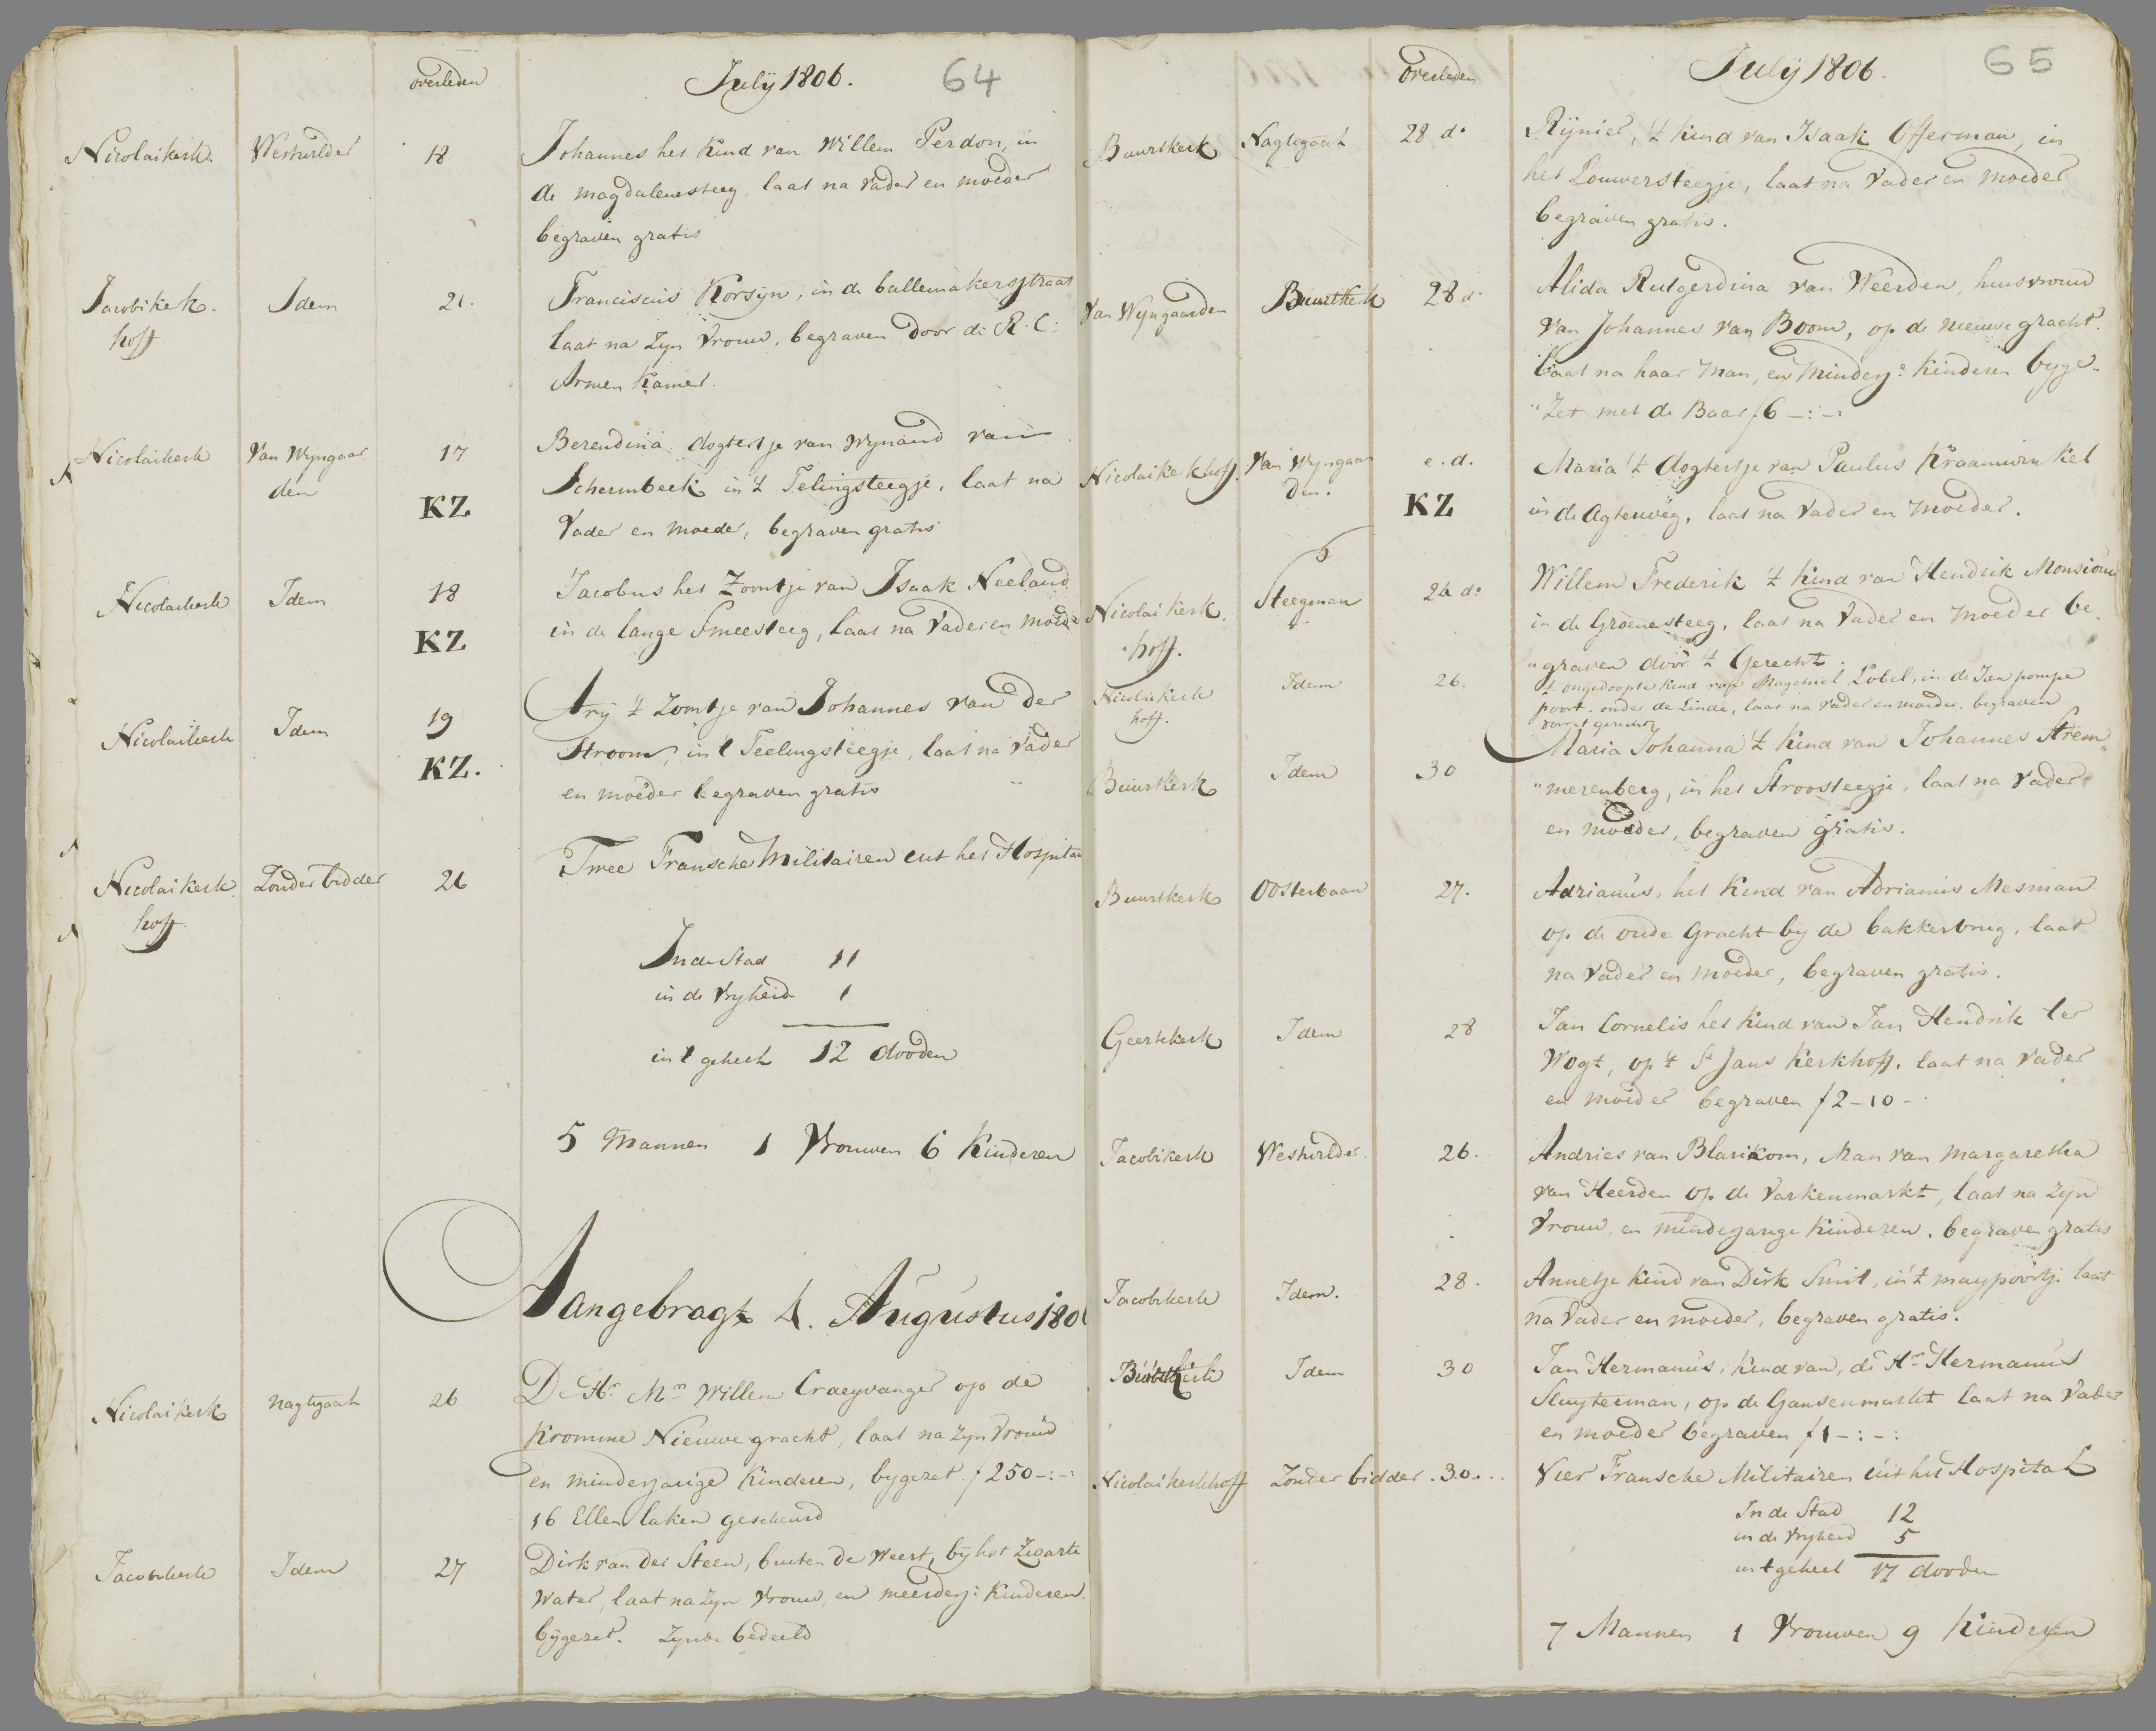 overleden July 1806. 64
Nicolaikerk. Westuilder 18 Johannes het Kind van Willem Perdon, in
de magdalenesteeg, laat na vader en moeder
begraven gratis
Jacobikek. Idem 21. Franciscus Korsyn, in de ballemakersstraat
hoff laat na Zyn Vrouw, begraven door de R. C:
Armen Kamer.
Nicolaikerk Van Wyngaar 17 Berendina dogtertje van Wynand van
den KZ Schermbeek in 't Telingsteegje, laat na
Vader en moeder, begraven gratis
Nicolaikerk Idem 18 Jacobus het Zoontje van Isaak Neeland
KZ in de lange Smeesteeg, laat na Vader en moeder
Nicolaikerk Idem 19 Ary 't Zoontje van Johannes van der
KZ. Stroom, in 't Teelingsteegje, laat na vader
en moeder begraven gratis
Nicolaikerk Zonder bidder 26 Twee Fransche Militairen uit het Hospitaa
hoff
In de Stad 11
in de Vryheid 1
in 't geheel 12 dooden
5 Mannen 1 Vrouwen 6 Kinderen
Aangebragt 4. Augustus 180
Nicolaikerk Nagtegaal 26 De Hr. Mr. Willem Craeyvanger op de
Kromme Nieuwe gracht, laat na Zyn Vrouw
en minderjarige Kinderen, bygezet f 250-:-:
16 Ellen laken gescheurd
Jacobikerk Idem 27 Dirk van der Steen, buiten de Weert, by het Zwarte
Water, laat na Zyn Vrouw, en meerderj: Kinderen
bygezet. Zynde bedeeld
overleden July 1806. 65
Buurkerk Nagtegaal 28 do Rynier, 't kind van Isaak Offerman, in
het Louwersteegje, laat na Vader en moeder
begraven gratis.
Van Wyngaarden Buurtkerk 28 d. Alida Rutgerdina van Weerden, huisvrouw
van Johannes van Boom, op de nieuwe gracht.
laat na haar Man, en minderj: Kinderen byge-
"Zet met de Baar f 6 -:-:
Nicolaikekhoff. Van Wyngaar e. d. Maria 't dogtertje van Paulus Kraanwinkel
den. KZ in de Agterweg, laat na Vader en Moeder.
Nicolai kerk. Steegman 24 do Willem Frederik 't kind van Hendrik Monsiouw
hoff. in de Groenesteeg, laat na Vader en moeder be-
"graven door 't Gerecht.
Nicolaikerk Idem 26. 't ongedoopte kind van Lobel, in de Jan pompe
hoff. poort. onder de Linde, laat na Vader en moeder, begraven
van 't gerecht
Buurkerk Idem 30 Maria Johanna 't kind van Johannes Strem"
"merenberg, in het Stroosteegje, laat na Vader
en moeder, begraven gratis.
Buurkerk Oosterbaan 27. Adrianus, het Kind van Adrianus Mesman
op de oude Gracht by de bakkerbrug, laat
na Vader en moeder, begraven gratis.
Geertekerk Idem 28 Jan Cornelis het kind van Jan Hendrik ter
Vogt, op 't St Jans Kerkhoff. laat na Vader
en moeder begraven f 2-10-
Jacobikerk Westuilder. 26. Andries van Blarikom, Man van Margaretha
van Heerden op de Varkenmarkt, laat na Zyn
Vrouw, en minderjarige Kinderen. begraven gratis
Jacobikerk Idem. 28. Annetje kind van Dirk Smit, in 't maypoortje laat
na Vader en moeder, begraven gratis.
Buurkerk Idem 30 Jan Hermanus, kind van, de Hr. Hermanus
Sluyterman, op de Gansenmarkt laat na Vader
en moeder begraven f 1-:-:
Nicolaikerkhoff Zonder bidder. 30... Vier Fransche Militairen uit het Hospitaal
In de Stad 12
in de Vryheid 5
in t geheel 17 dooden
7 Mannen 1 Vrouwen 9 Kinderen